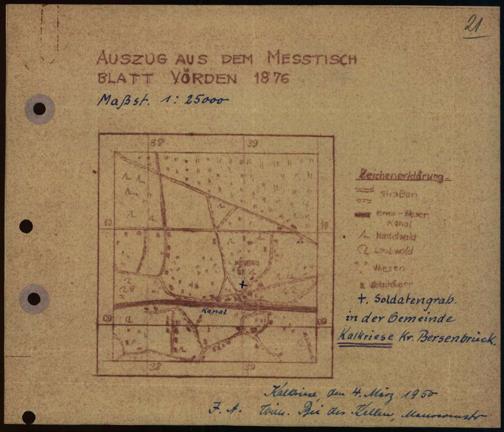 21
AUSZUG AUS DEM MESSTISCH
BLATT VÖRDEN 1876
Maßst. 1:25000
38 39
Zeichenerklärung
Straßen
Ems-Weser
Kanal
Nadelwald
Laubwald
Wiesen
Kanal
38 39
+. Soldatengrab.
in der Gemeinde
Kalkriese Kr. Bersenbrück
Kalkriese, den 4. März 1950
J. A.